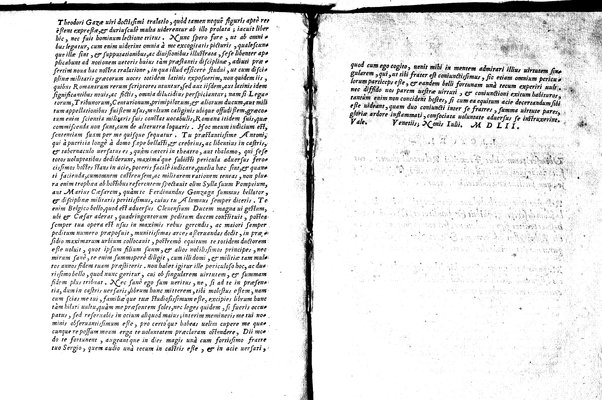 Theodori Gazæ viri doctissimi tralatio, quòd tamen neque figuris aptè re
stent expressæ, & duriuscula multa viderentur ab illo prolata; iacuit liber
hic, nec fuit hominum lectione tritus. Nunc spero fore, ut ab omni-
bus legatur, cum enim viderint omnia à me excogitatis picturis,
illæ sint, & suppositionibus, ac divisionibus illustrata, sese libenter ap-
plicabunt ad notionem veteris huius tam præstantis disciplinæ, adiuti præ
sertim nova hac nostra tralatione, in qua illud efficere studui, ut cum disci-
plinæ militaris græcorum voces totidem latinis exposuerim, non quidem iis,
quibus Romanarum rerum scriptores utuntur, sed aut iisdem, aut latinis idem
significantibus omnia
torum, Tribunorum, Centurionum, principilorum, & aliorum ducum, aut mili
tum appellationibus fuissem usus,
tum enim scientia militaris suis constat vocabulis, Romana itidem suis, quæ
commiscenda non sunt, cum de alterutra loquaris. Hoc meum iudicium est,
sententiam suam per me quisque sequatur. Tu præstantissime Antoni,
qui à pueritia longè à domo sæpe bellasti, & crebrius, ac libentius in castris,
& tabernaculo versatus es, quàm cæteri in theatro, aut thalamo, qui sese
totos voluptatibus dediderunt, maximaque subisti pericula adversus feroc
cissimos hostes stans in acie, poteris facilè indicare, quælia hæc sint, & quan-
ti facienda, summamque castrorum, ac militarem rationem teneas, non plu
ra enim trophæa ab hostibus referentem spectavit olim Sylla suum Pompeium,
aut Marius Cæsarem, quàm te Ferdinandus Gonzaga summus bellator,
& disciplinæ militaris peritissimus, cuius tu Alumnus semper diceris. Te
enim Belgico bello, quod est adversus Clevensium Ducem magna vi gestum,
ubi & Cæsar aderat, quadringentorum peditum ducem constituit, postea
semper tua opera est usus in maximis rebus gerendis, ac maiori semper
peditum numero præposuit, munitissimas arces asservandas dedit, in præ
sidio maximarum urbium collocavit, postremò equitum te totidem ductorem
esse voluit, quot ipsum filium suum, & alios nobilissimos principes, nec
mirum sanè, te enim summopere diligit, cum illi domi, & militiæ tam mul-
tos annos fidem tuam præstiteris. non hæret igitur ille periculoso hoc, ac du-
rissimo bello, quod nunc geritur, cui ob singularem virtutem, & summam
fidem plus tribuat. Nec sanè ego sum veritus, ne, si ad te in præsen-
tia, dum in castris versaris, librum hunc mitterem, tibi molestus essem, non
cum scies me tui, familiæque tuæ studiosissimum esse, excipies librum hunc
tàm hilari vultu, quàm me præsentem soles, nec leges quidem, si fueris occu-
patus, sed reservabis in ocium aliquod maius, interim memineris me tui no-
minis observantissimum esse, pro certoque habeas velim cupere me quæ-
cunque re possum meam erga te voluntatem præclaram ostendere, Dii mo-
do te fortunent, augeantque in dies magis unà cum fortissimo fratre
tuo Sergio, quem audio unà tecum in castris esse, & in acie versari,
quod cum ego cogito, venit mihi in mentem admirari illius virtutem sin-
gularem, qui, ut tibi frater est coniunctissimus, sic etiam omnium pericu-
lorum particeps esse, & eandem belli fortunam unà tecum experiri vult.
nec diffido nos parem vestræ virtuti, & coniunctioni exitum habituros,
quoniam enim non concidetis hostes, si cum ea equitum acie decertandum sibi
esse videant, quam duo coniuncti inter se fratres, summæ virtute pares,
gloriæ ardore inflammati, consociata voluntate adversus se instruxerint.
Vale. Venetiis, Nonis Iulii, M D LII.